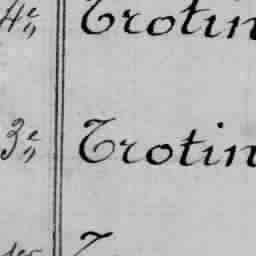 4e Trotin
3e Trotin